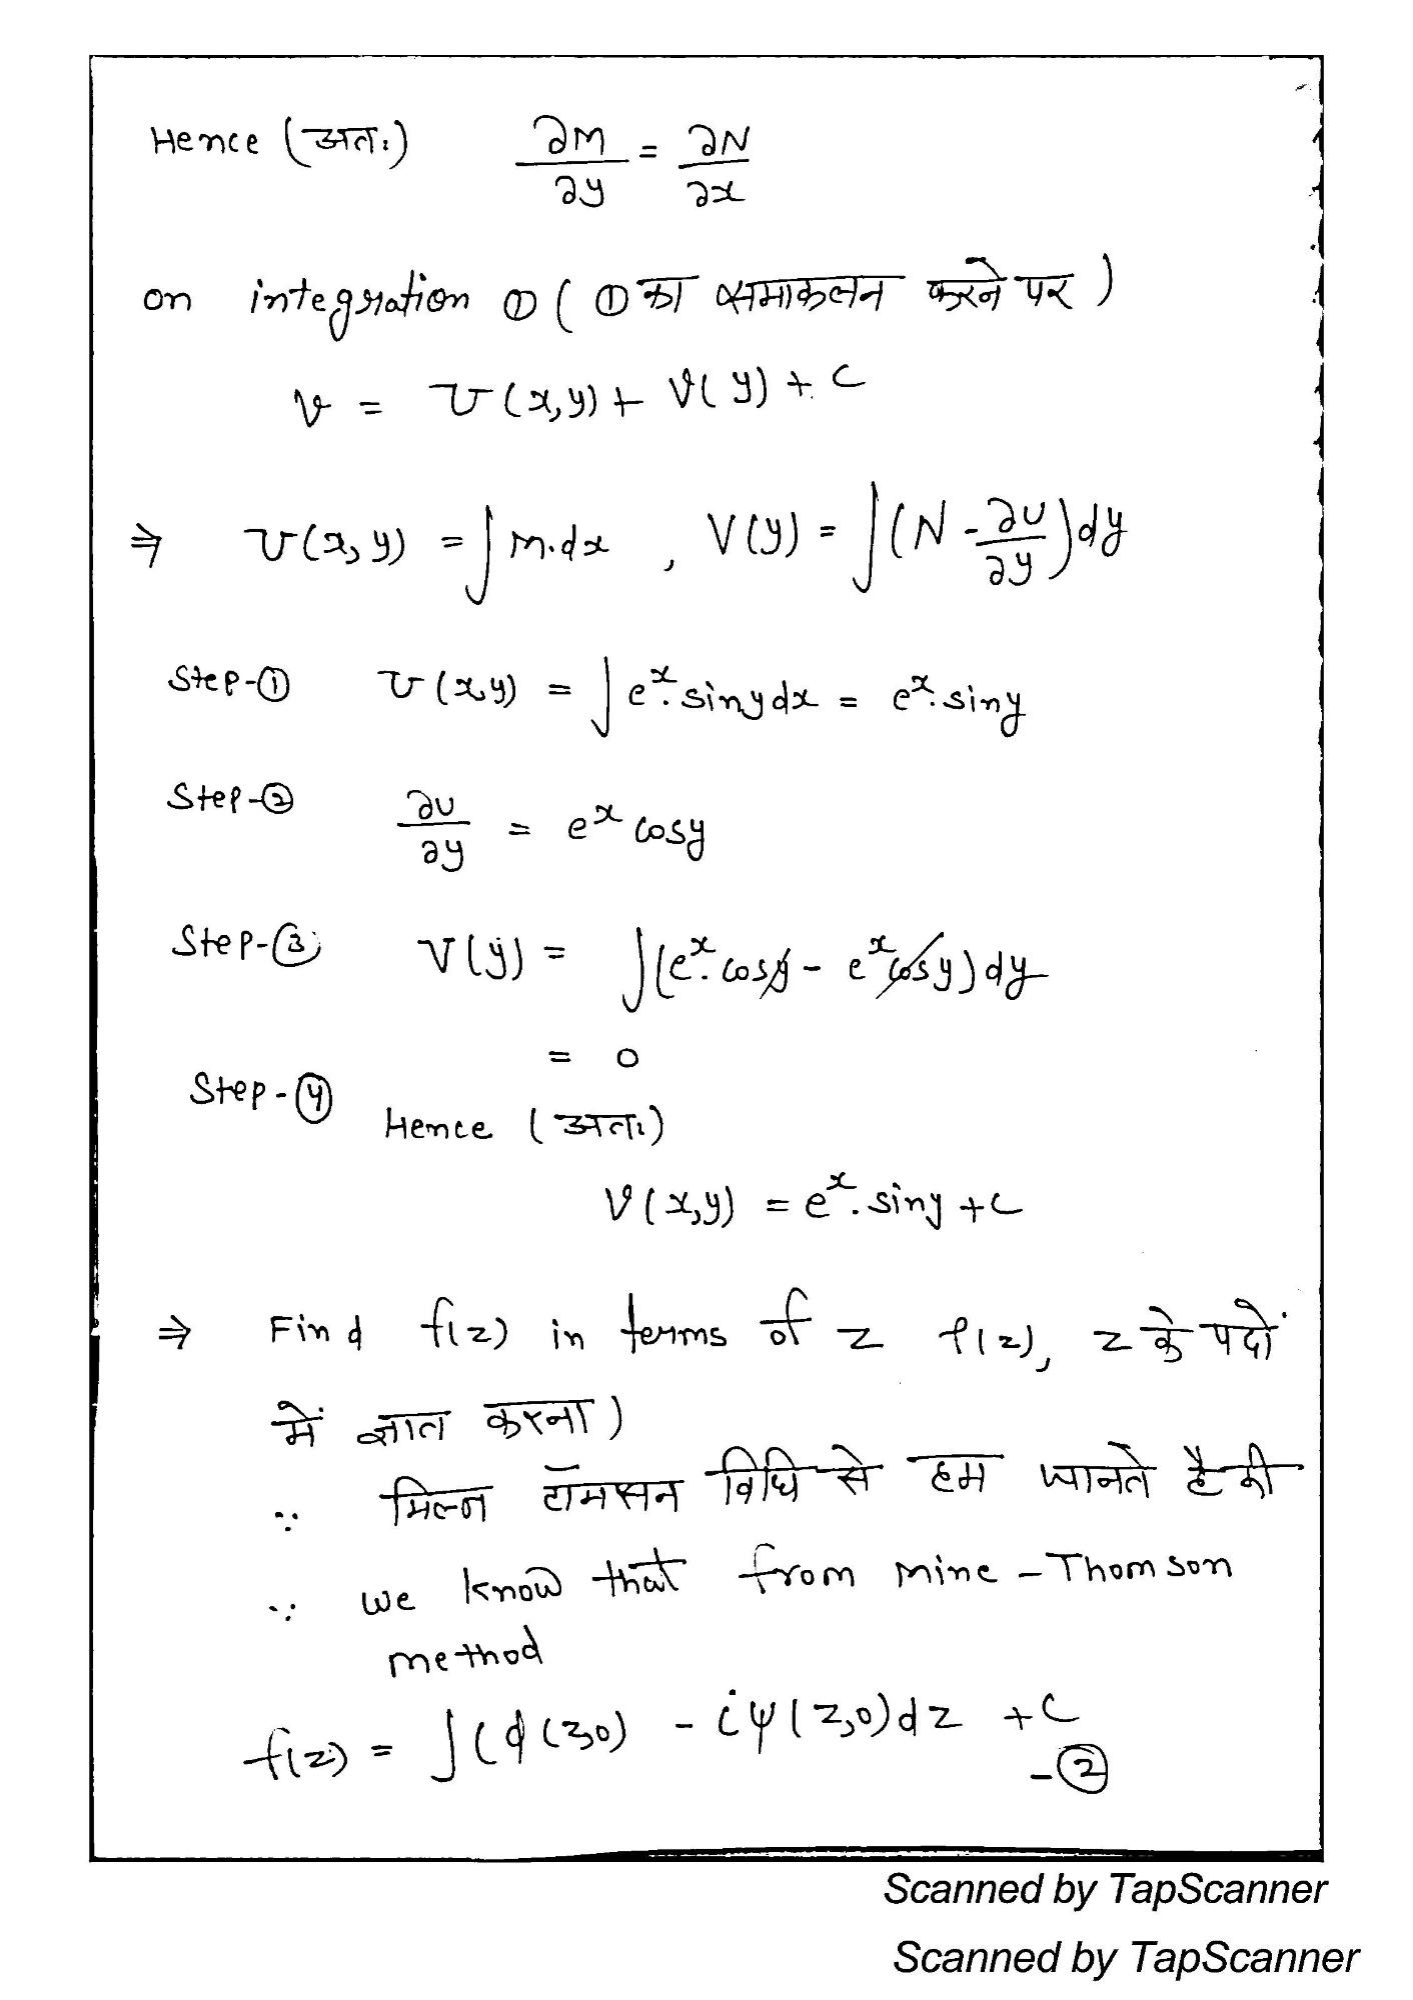 Hence (अतः) ∂M/∂y = ∂N/∂x
on integration ① ( ① का समाकलन करने पर )
v = U(x,y) + V(y) + c
⇒ U(x,y) = ∫M.dx , V(y) = ∫(N - ∂U/∂y)dy
Step-① U(x,y) = ∫e^x.siny dx = e^x.siny
Step-② ∂U/∂y = e^x cosy
Step-③ V(y) = ∫(e^x.cosy - e^x cosy)dy
= 0
Step-④
Hence (अतः)
V(x,y) = e^x.siny + c
⇒ Find f(z) in terms of z f(z), z के पदों
में ज्ञात करना)
∵ मिल्न टॉमसन विधि से हम जानते है की
∵ we know that from mine-Thomson
method
f(z) = ∫(ϕ(z,0) - iψ(z,0)dz + c
-②
Scanned by TapScanner
Scanned by TapScanner